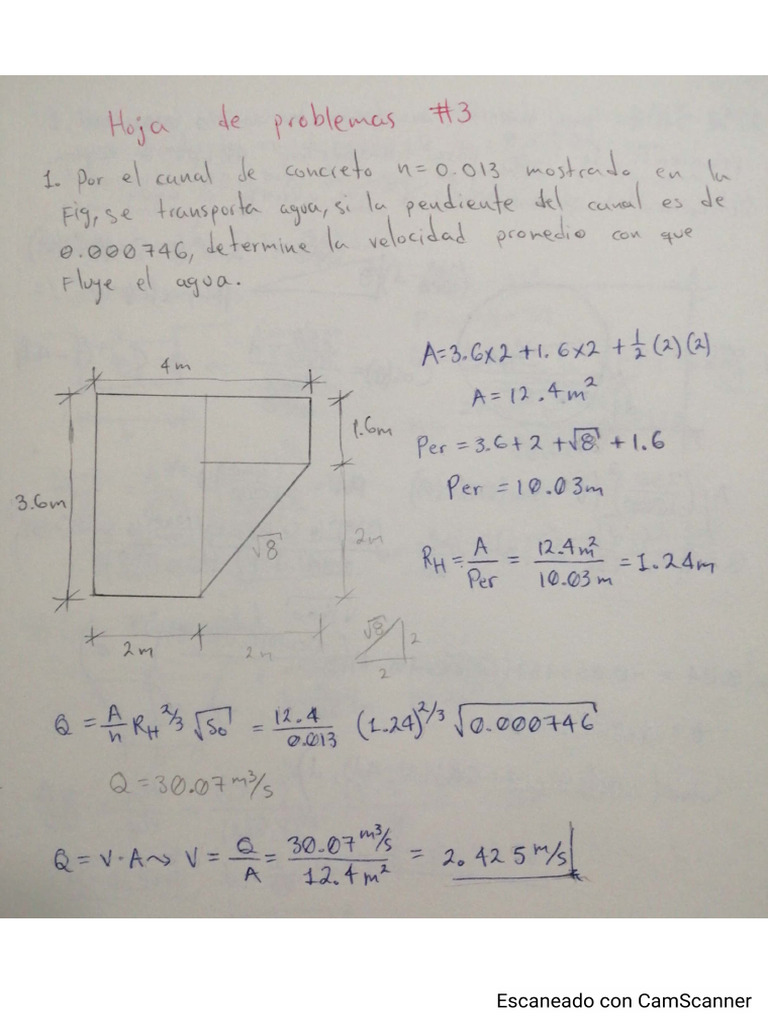 Hoja de problemas #3
1. Por el canal de concreto n=0.013 mostrado en la
Fig, se transporta agua, si la pendiente del canal es de
0.000746, determine la velocidad promedio con que
Fluye el agua.
4m
1.6m
3.6m
2m
√8
2m
2m
√8
2
2
A=3.6x2+1.6x2+½(2)(2)
A=12.4m²
Per=3.6+2+√8+1.6
Per=10.03m
R_H = A/Per = 12.4m²/10.03m = 1.24m
Q = A/n R_H^2/3 √S₀ = 12.4/0.013 (1.24)^2/3 √0.000746
Q=30.07 m³/s
Q = V·A ⇝ V = Q/A = 30.07 m³/s / 12.4m² = 2.425 m/s
Escaneado con CamScanner